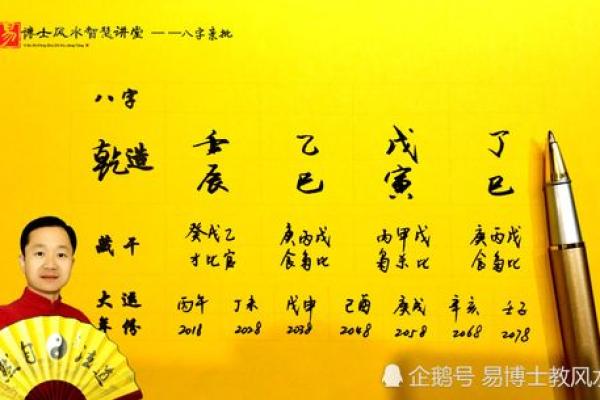 易 博士风水智慧讲堂 ——八字亲批
八字
乾造 壬 乙 戊 丁
辰 巳 寅 巳
藏干 癸戊乙 庚丙戊 丙甲戊 庚丙戊
才比官 食枭比 枭杀比 食枭比
大运 丙午 丁未 戊申 己酉 庚戌 辛亥 壬子
年份 2018 2028 2038 2048 2058 2068 2078
然自法道
企鹅号 易博士教风水